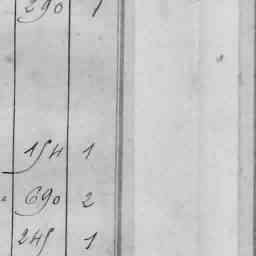 290 1
154 1
690 2
245 1